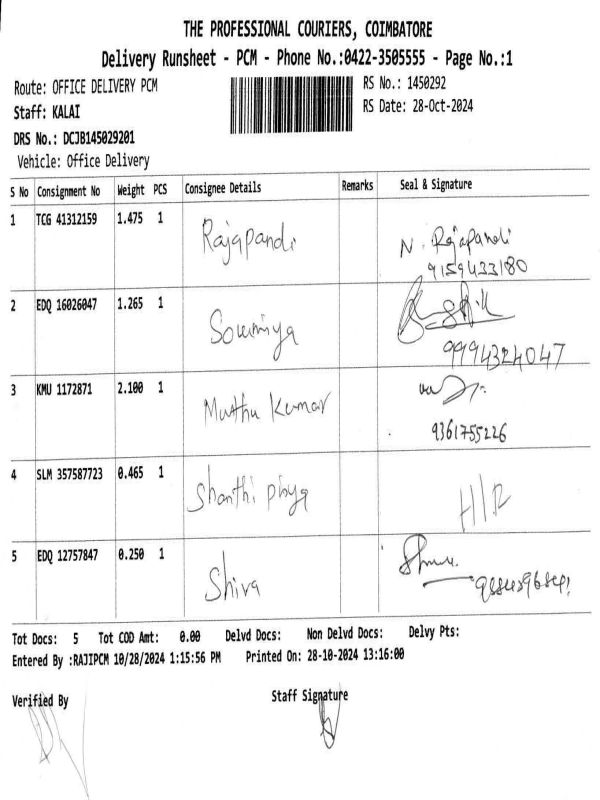 THE PROFESSIONAL COURIERS, COIMBATORE
Delivery Runsheet - PCM - Phone No.:0422-3505555 - Page No.:1
Route: OFFICE DELIVERY PCM
RS No.: 1450292
Staff: KALAI
RS Date: 28-Oct-2024
DRS No.: DCJB145029201
Vehicle: Office Delivery
S No Consignment No Weight PCS Consignee Details Remarks Seal & Signature
1 TCG 41312159 1.475 1 Rajapandi N. Rajapandi
9159433180
2 EDQ 16026047 1.265 1 Sowmiya
9994324047
3 KMU 1172871 2.100 1 Muthu Kumar
9361755226
4 SLM 357587723 0.465 1 Shanthi priya H/R
5 EDQ 12757847 0.250 1 Shiva
Tot Docs: 5 Tot COD Amt: 0.00 Delvd Docs: Non Delvd Docs: Delvy Pts:
Entered By :RAJIPCM 10/28/2024 1:15:56 PM Printed On: 28-10-2024 13:16:00
Verified By Staff Signature